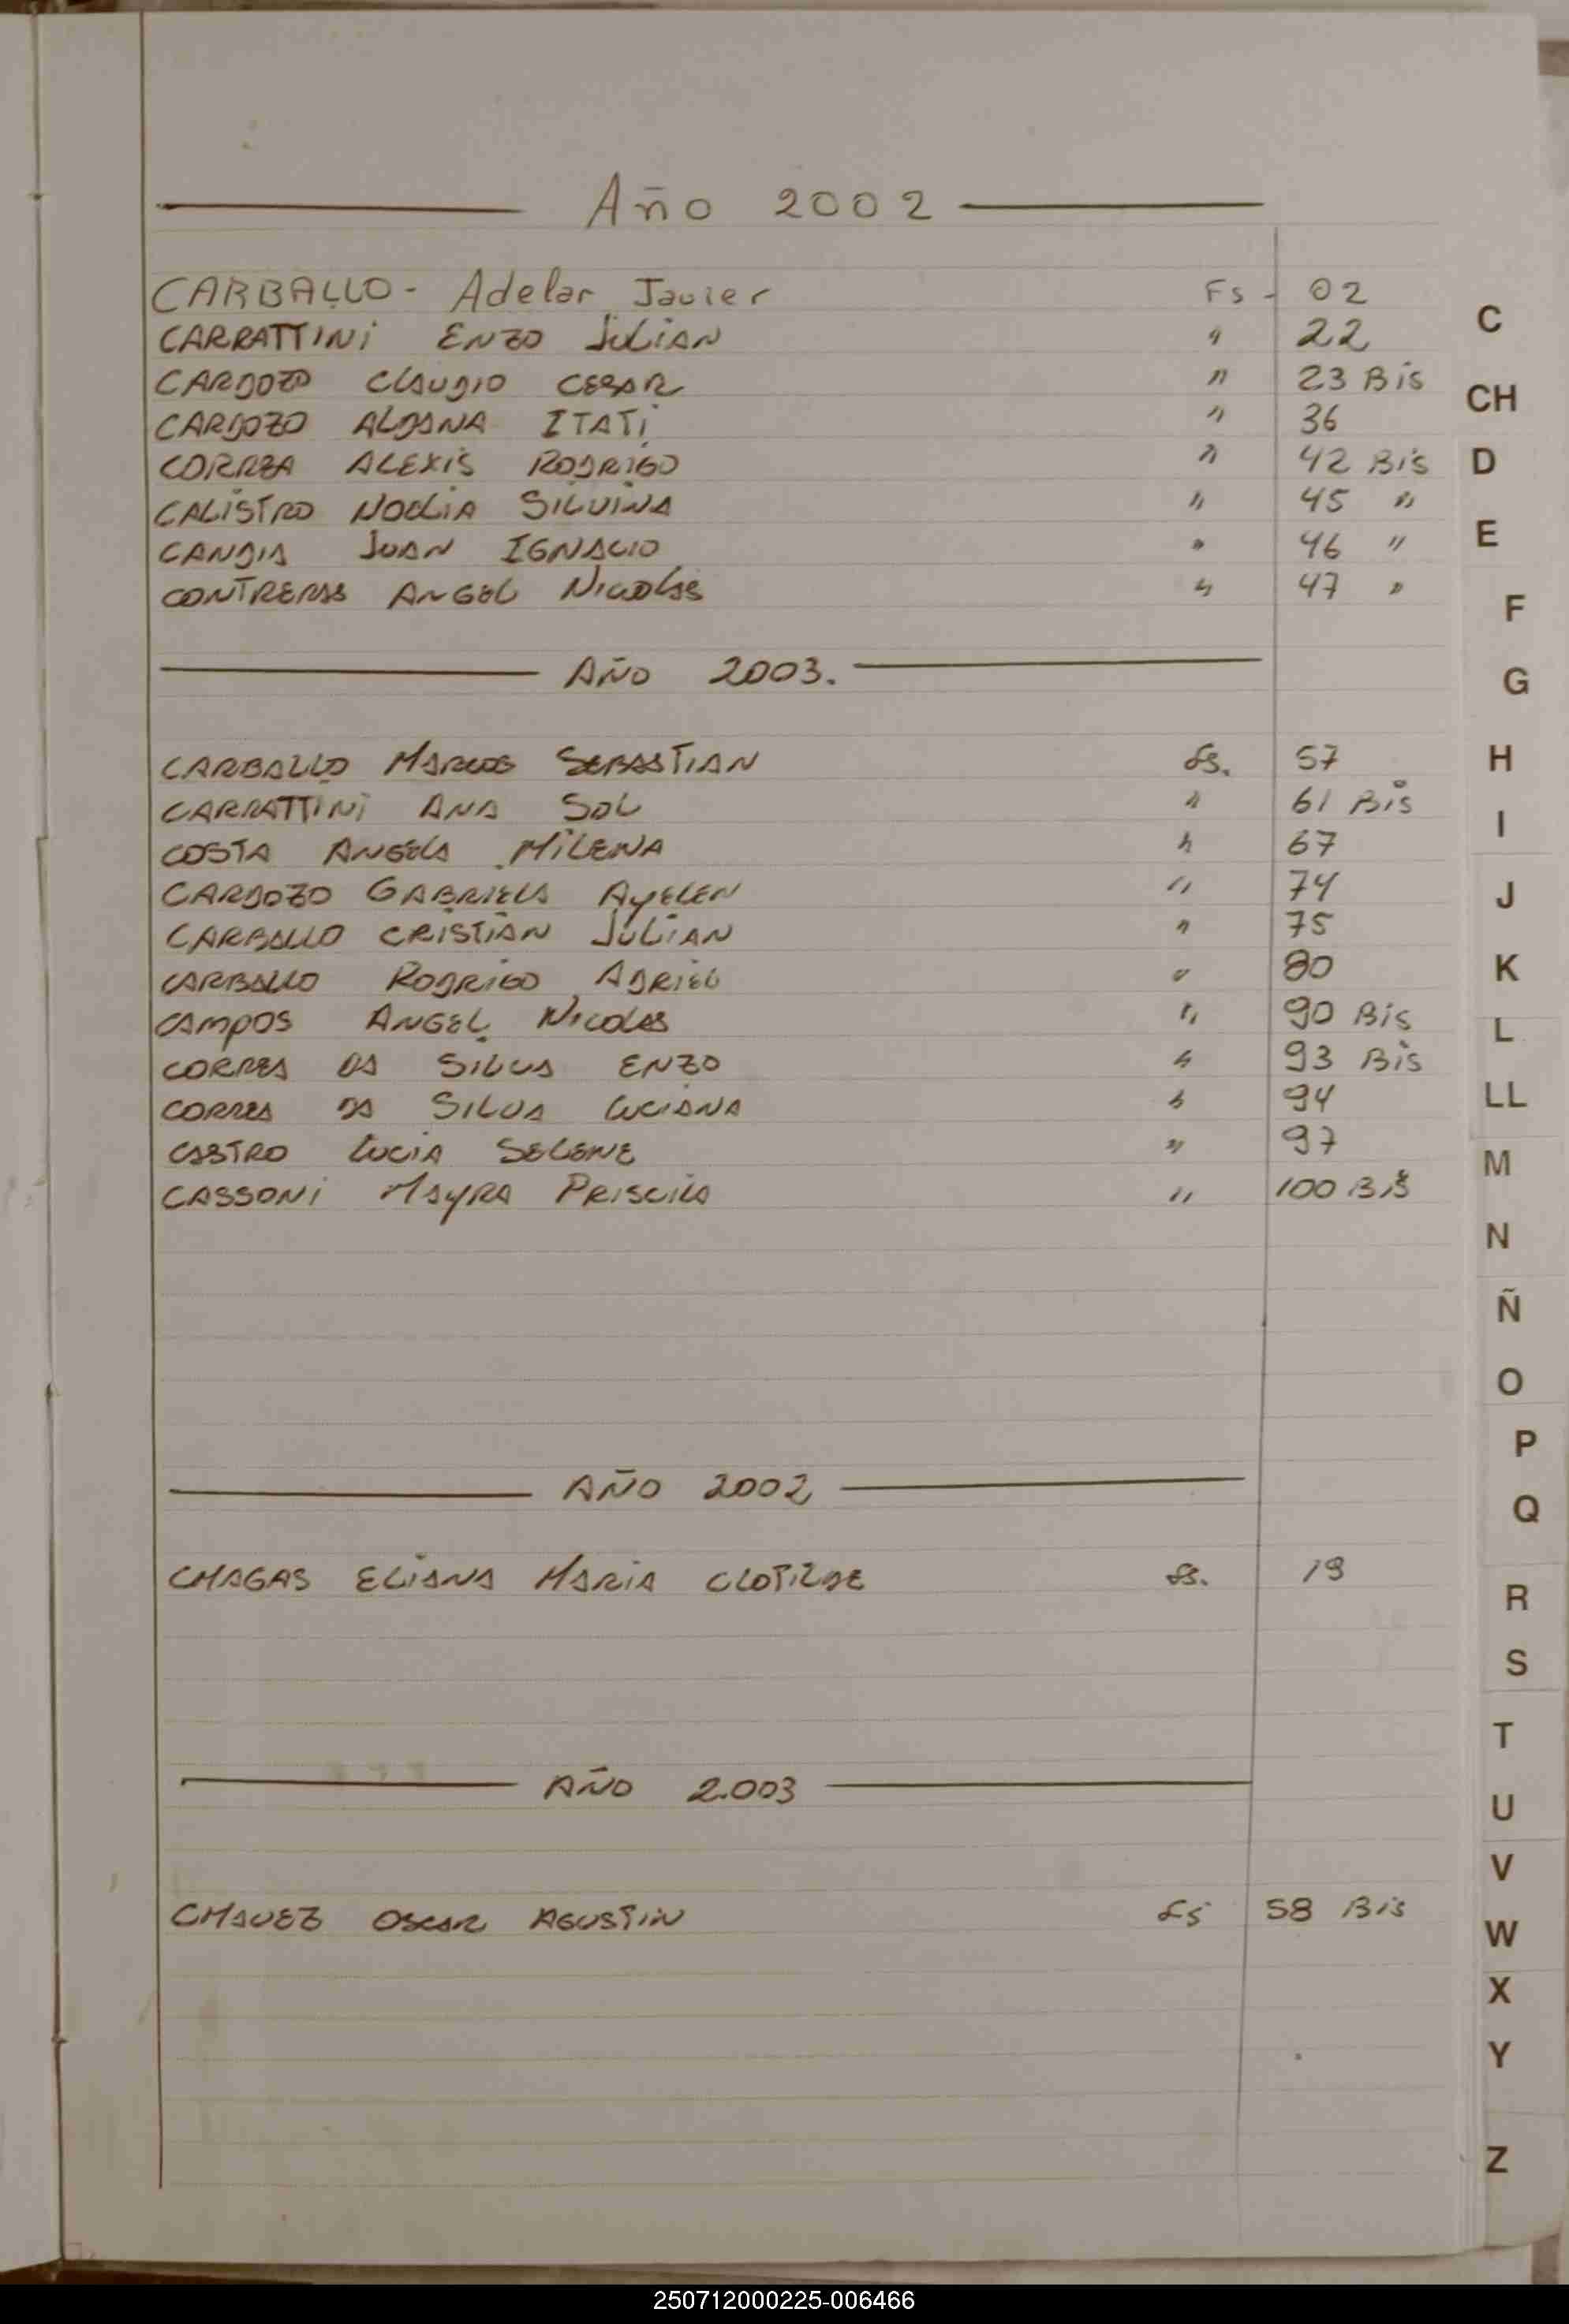 Año 2002
CARBALLO - Adelar Javier Fs - 02
CARRATTINI ENZO JULIAN " 22
CARDOZO CLAUDIO CESAR " 23 Bis
CARDOZO ALDANA ITATI " 36
CORREA ALEXIS RODRIGO " 42 Bis
CALISTRO NOELIA SILVINA " 45 "
CANDIA JUAN IGNACIO " 46 "
CONTRERAS ANGEL NICOLAS " 47 "
AÑO 2003.
CARBALLO MARCOS SEBASTIAN fs. 57
CARRATTINI ANA SOL " 61 Bis
COSTA ANGELA MILENA " 67
CARDOZO GABRIELA AYELEN " 74
CARBALLO CRISTIAN JULIAN " 75
CARBALLO RODRIGO ADRIEL " 80
CAMPOS ANGEL NICOLAS " 90 Bis
CORREA DA SILVA ENZO " 93 Bis
CORREA DA SILVA LUCIANA " 94
CASTRO LUCIA SELENE " 97
CASSONI MAYRA PRISCILA " 100 Bis
AÑO 2002
CHAGAS ELIANA MARIA CLOTILDE fs. 19
AÑO 2.003
CHAVEZ OSCAR AGUSTIN fs 58 Bis
C
CH
D
E
F
G
H
I
J
K
L
LL
M
N
Ñ
O
P
Q
R
S
T
U
V
W
X
Y
Z
250712000225-006466